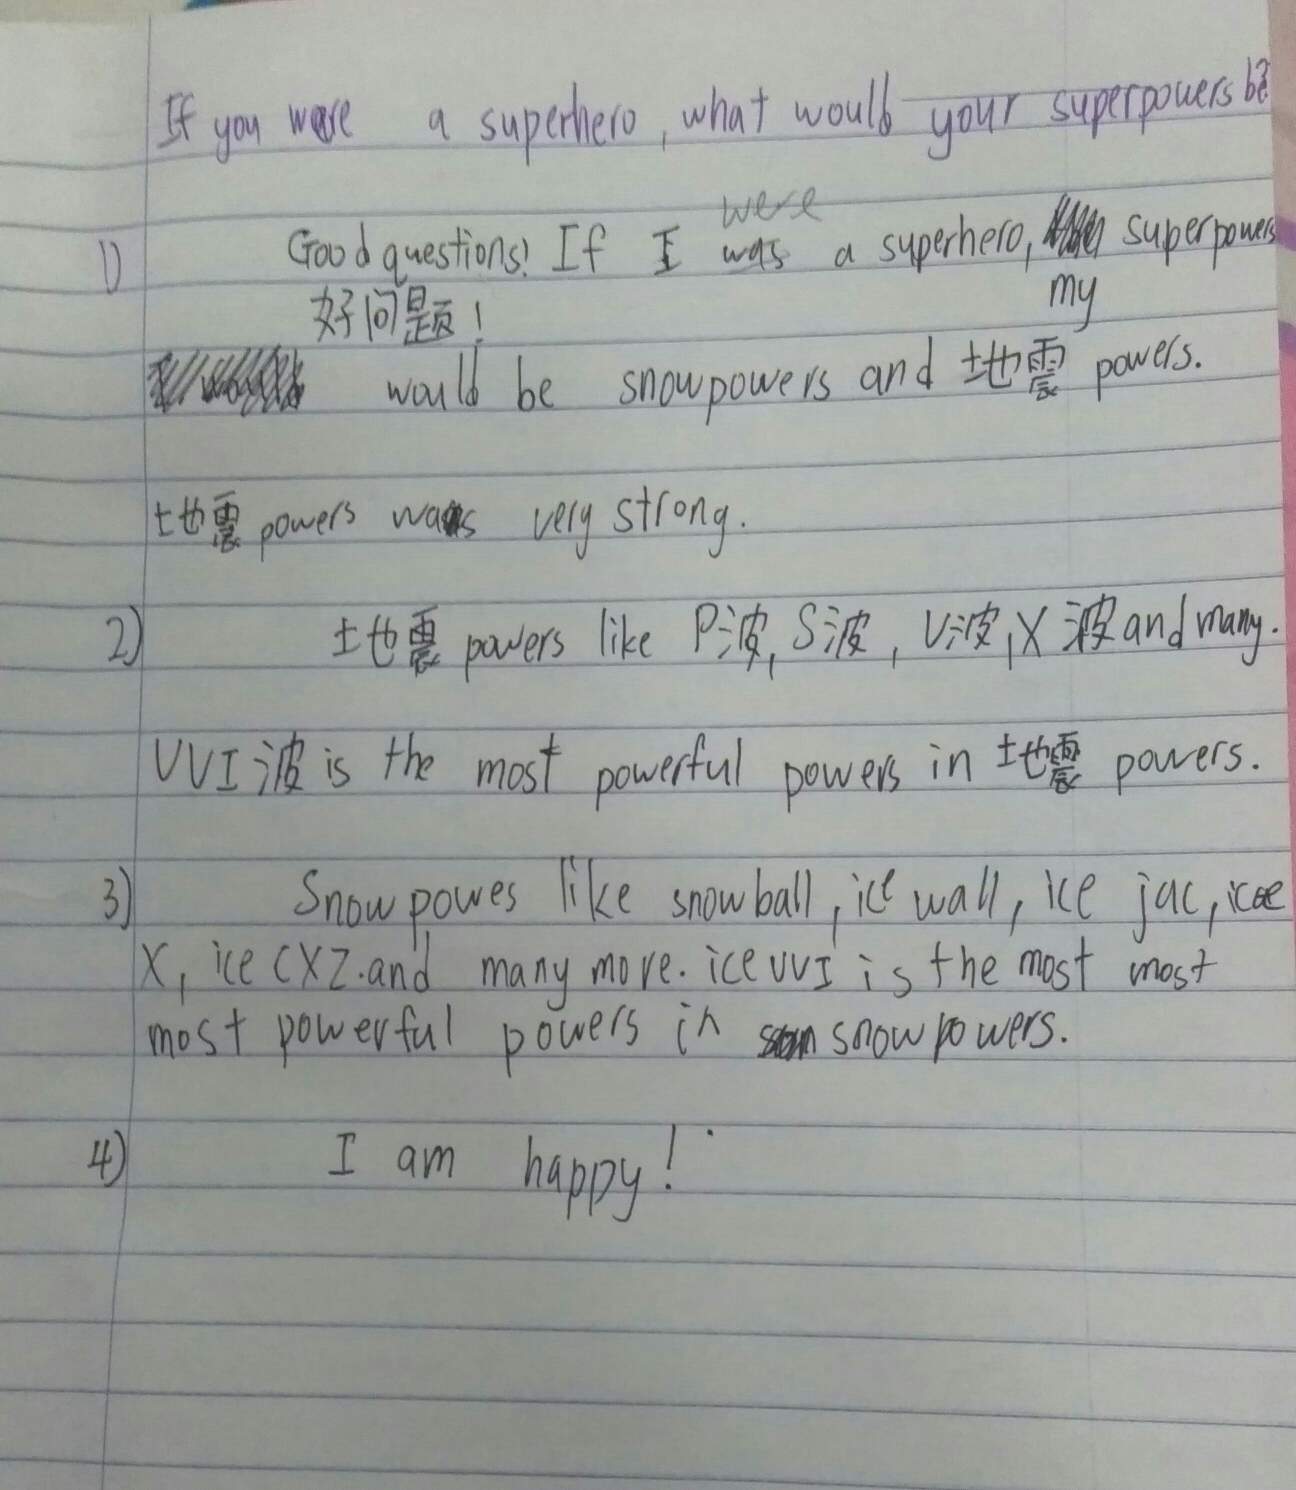 If you were a superhero, what would your superpowers be?
were
1) Good questions! If I was a superhero, superpowers
好问题! my
would be snowpowers and 地震 powers.
地震 powers was very strong.
2) 地震 powers like P波, S波, V波, X波 and many.
VVI波 is the most powerful powers in 地震 powers.
3) Snow powes like snowball, ice wall, ice jac, ice
X, ice CXZ. and many more. ice VVI is the most most
most powerful powers in snow powers.
4) I am happy!